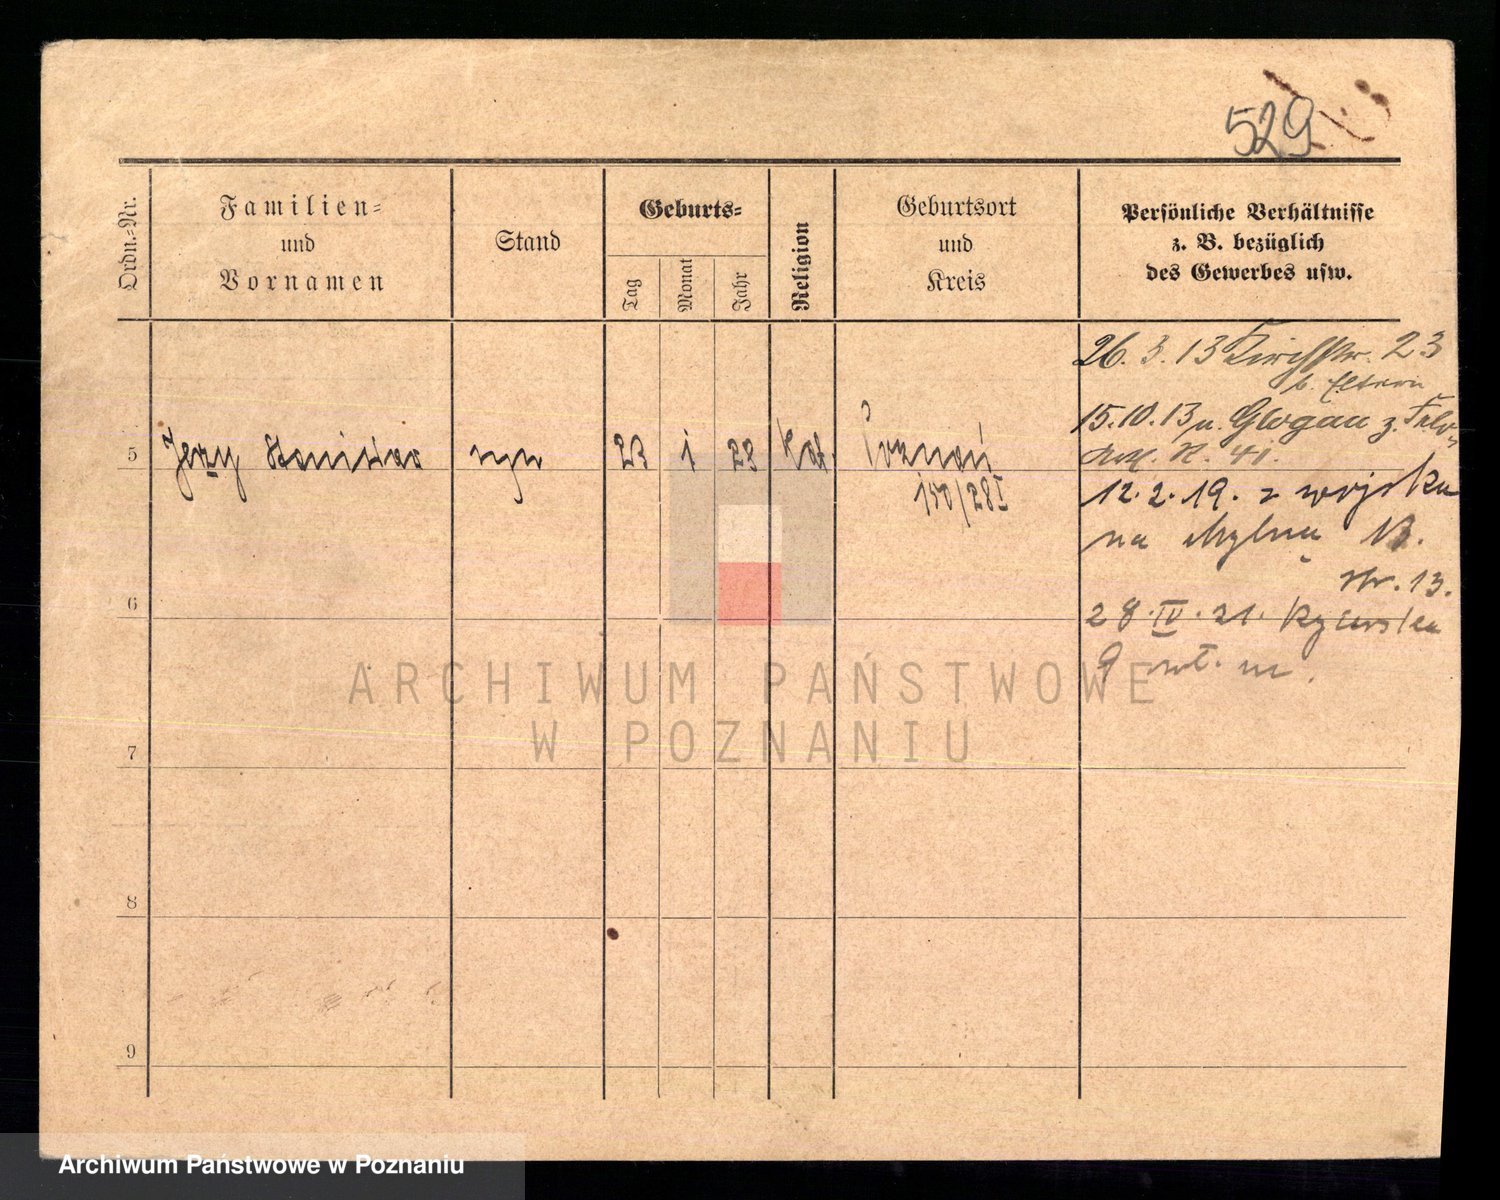 529
Ordn.-Nr.
Familien-
und
Vornamen
Stand
Geburts-
Tag
Monat
Jahr
Religion
Geburtsort
und
Kreis
Persönliche Verhältnisse
z. B. bezüglich
des Gewerbes usw.
26. 3. 13 Kirchstr. 23
b. Eltern
15.10.13 n. Glogau z.
41.
5
Jerzy Stanisław syn 23 1 28 Kat. Poznań
150/28 I
12. 2. 19. z wojska
na Mylną 13.
6
28. IV. 21.
9
7
8
9
ARCHIWUM PAŃSTWOWE
W POZNANIU
Archiwum Państwowe w Poznaniu